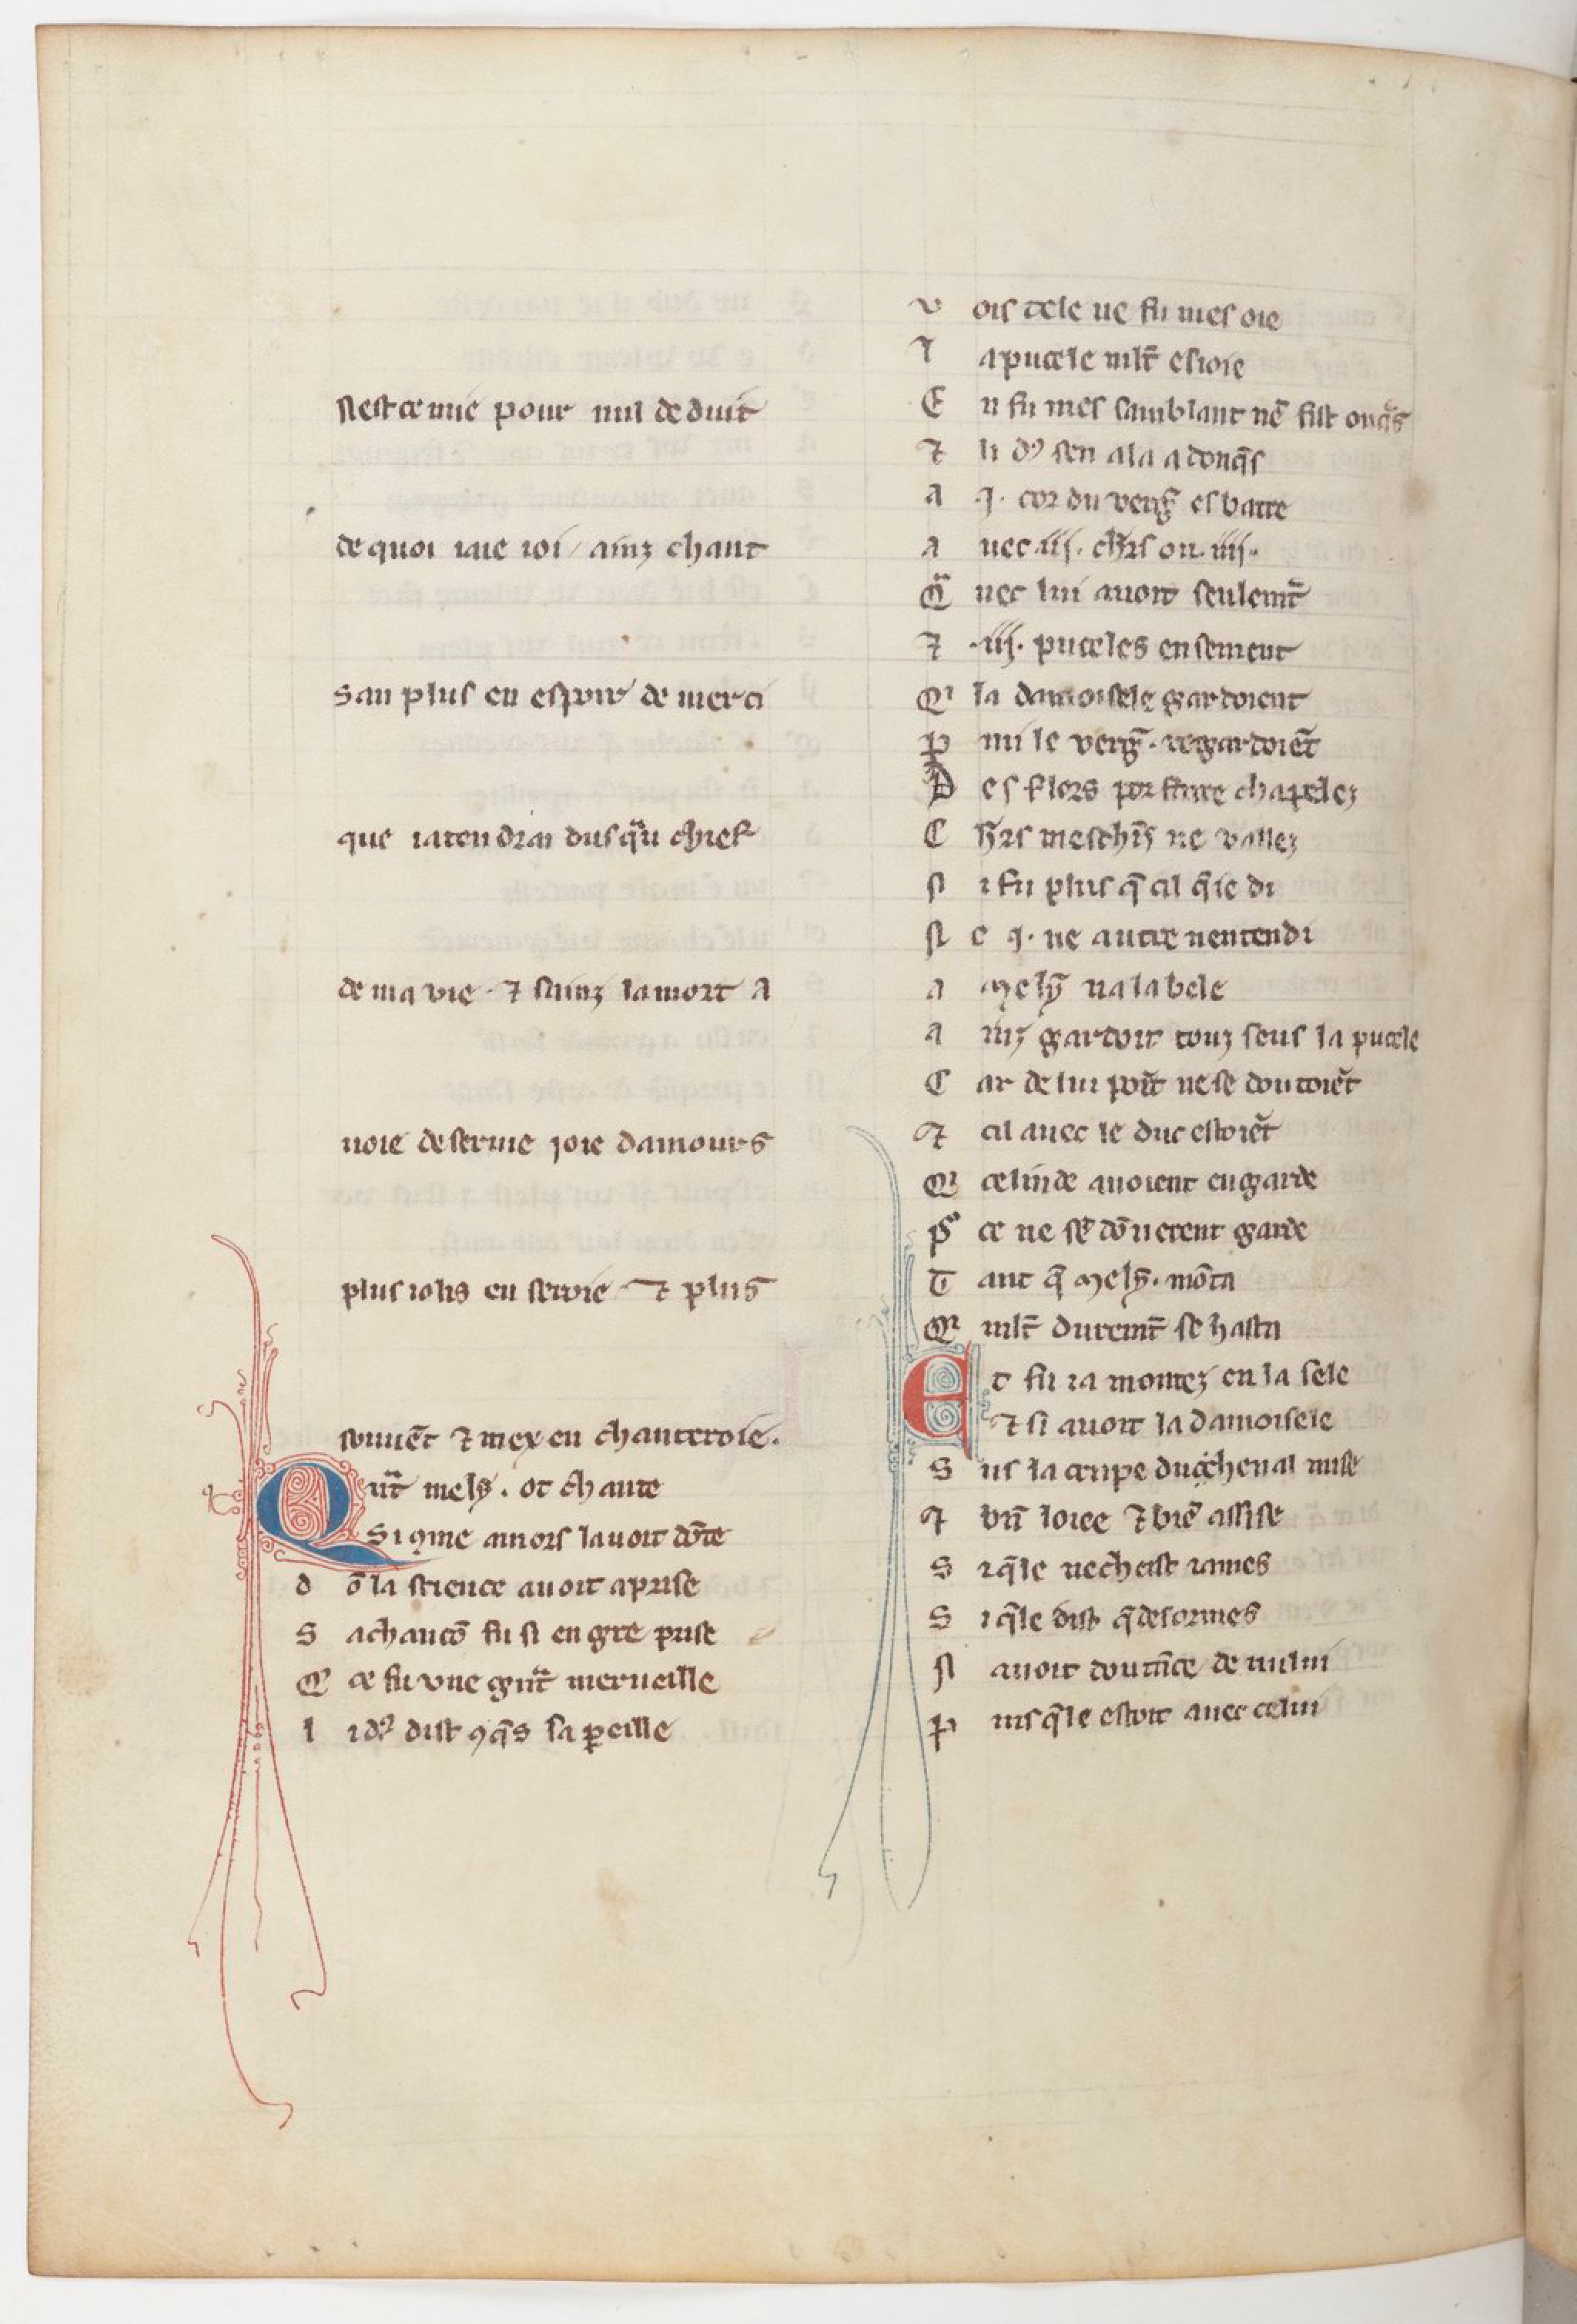 Nest ce mie pour nul deduit
de quoi iaie ioi / ainz chant
San plus en espoir de merci
que iatendrai dusqu̾u chief
de ma vie · ⁊ sainz la mort A
uoie deserme joie damours
plus iolis en seroie · ⁊ plus
souuēt ⁊ mex en chanteroie.
Qu̾t mely̾. ot chante
Si ꝯme amors lauoit dōte
d ō la science auoit aprise
S achancō fu si en gre prise
Q̾ ce fu vne gn̾t merueille
l i d᷒ dist ꝯq̄s sa ꝑeille
v ois tele ne fu mes oie
l a pucele ml̄t esioie
E n fu mes samblant nē fist onq̄s
⁊ li d᷒ sen ala adonq̄s
a ·j· cor du verg̾ esbatre
a uec ·iij· ch̾rs ou ·iiij·
Q̾ uec lui auoit seulem̄t
⁊ ·iij· puceles ensement
Q̾ la damoisele gardoient
p mi le verg̾ · regardoiēt
D es flors por faire chapelez
C h̾rs meschīs ne vallez
N i fu plus q̄ cil q̄ ie di
N e ·j· ne autre nentendi
a mely̾ na la bele
a inz gardoit touz seus la pucele
C ar de lui poīt ne se doutoiēt
⁊ cil auec le duc estoiēt
Q̾ celinde auoient en garde
p̾ ce ne sē dōnerent garde
T ant q̄ mely̾. mōta
Q̾ ml̄t durem̄t se hasta
Et fu ia montez en la sele
⁊ si auoit la damoisele
S us la crupe du cheual mise
⁊ bn̄ loiee ⁊ biē assise
S i q̄le ne cheist iames
S i q̄le dist q̄ desormes
N auoit doutāce de nului
p uis q̄le estoit auec celui